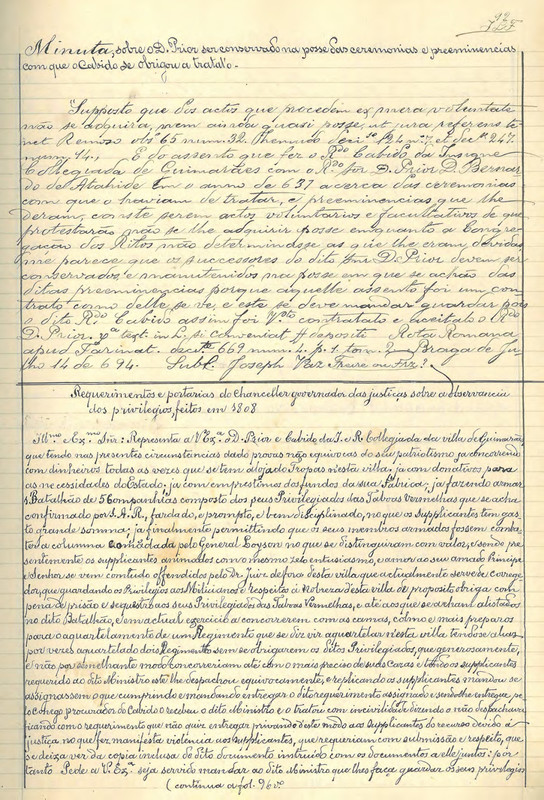 Minuta, sobre o D. Prior ser conservado na posse das ceremonias e preeminencias
com que o Cabido se obrigou a tratal'o.-
Supposto que dos actos que procedem ex mera voluntate
não se adquira, nem ainda quasi posse, ut jura referens te
net Remoso obs 65 num. 32. Themudo
num. 14., E do assento que fez o R.do Cabido da Insigne
Collegiada de Guimarães com o R.do Snr D. Prior D. Bernar
do de Atahide em o anno de 637 acerca das ceremonias
com que o haviam de tratar, e preeminencias que lhe
deram, conste serem actos voluntarios e facultativos de que
protestarão não se lhe adquirir posse emquanto a Congre-
gação dos Ritos não determinasse as que lhe eram devidas
me parece que os successores do dito Snr D. Prior devem ser
conservados, e manutenidos na posse em que se achão das
ditas preeminencias porque aquelle assento foi um con
trato como delle se vê, e este se deve mandar guardar pois
o dito R.do Cabido assim foi contratado e aceitalo o R.do
D. Prior. text. in L. si conveniat ff depositi Rota Romana
apud Farinat. 669 num. 4. p. 1 tom. 2 Braga de Ju
lho 14 de 694. Joseph Vaz Freire ou Frz?
Requerimentos e portarias do Chanceller governador das justiças sobre a observancia
dos privilegios, feitos em 1808
Ill.mo e Ex.mo Snr: Representa a V.Ex.a o D. Prior e Cabido da I. e R. Collegiada da villa de Guimarães
que tendo nas presentes circunstancias dado provas não equivocas do seu patriotismo já concorrendo
com dinheiros todas as vezes que se tem alojado Tropas nesta villa, já com donativos para
as necessidades do Estado, já com emprestimos dos fundos da sua Fabrica; já fazendo armar
o Batalhão de 5 Companhias composto dos seus Privilegiados das Taboas Vermelhas que se acha
confirmado por S.A.R., fardado, e prompto, e bem disciplinado, no que os supplicantes tem gas
to grande somma; já finalmente permittindo que os seus membros armados fossem comba
ter a columna comandada pelo General Loyson no que se distinguiram com valor, e sendo pre
sentemente os supplicantes animados com o mesmo zelo enthusiasmo, e amor ao seu amado Principe
e Senhor, se vem comtudo offendidos pelo Dr. Juiz de fora desta villa que actualmente serve de correge
dor, que guardando os Privilegios aos Milicianos e respeitos á nobreza desta villa de proposito obriga com
pena de prisão e sequestro aos seus Privilegiados das Taboas Vermelhas, e até aos que se acham alistados
no dito Batalhão, e em actual exercicio a concorrerem com as camas, cobre e mais preparos
para o aquartelamento de um Regimento que se diz vir aquartelar nesta villa tendo se a las
por vezes aquartelado dois Regimentos sem se obrigarem os ditos Privilegiados, que generosamente,
e não por semelhante modo concorreriam até com o mais preciso de suas Cazas e tendo os supplicantes
requerido ao dito Ministro este lhe despachou equivocamente, e replicando os supplicantes mandou se
assignassem o que cumprindo e mandando entregar o dito requerimento assignado e sendolhe entregue, pe
lo conego procurador do Cabido o recebeu o dito Ministro e o tratou com incivilidade dizendo o não despachava
ficando com o requerimento que não quiz entregar privando deste modo aos supplicantes do recurso devido á
justiça no que fez manifesta violencia aos supplicantes, que requeriam com submissão e respeito, que
se deixa ver da copia inclusa do dito documento instruido com os documentos a elle juntos: por
tanto Pede a V. Ex.a seja servido mandar ao dito Ministro que lhes faça guardar os seus privilegios
(continua a fol. 96 v.o